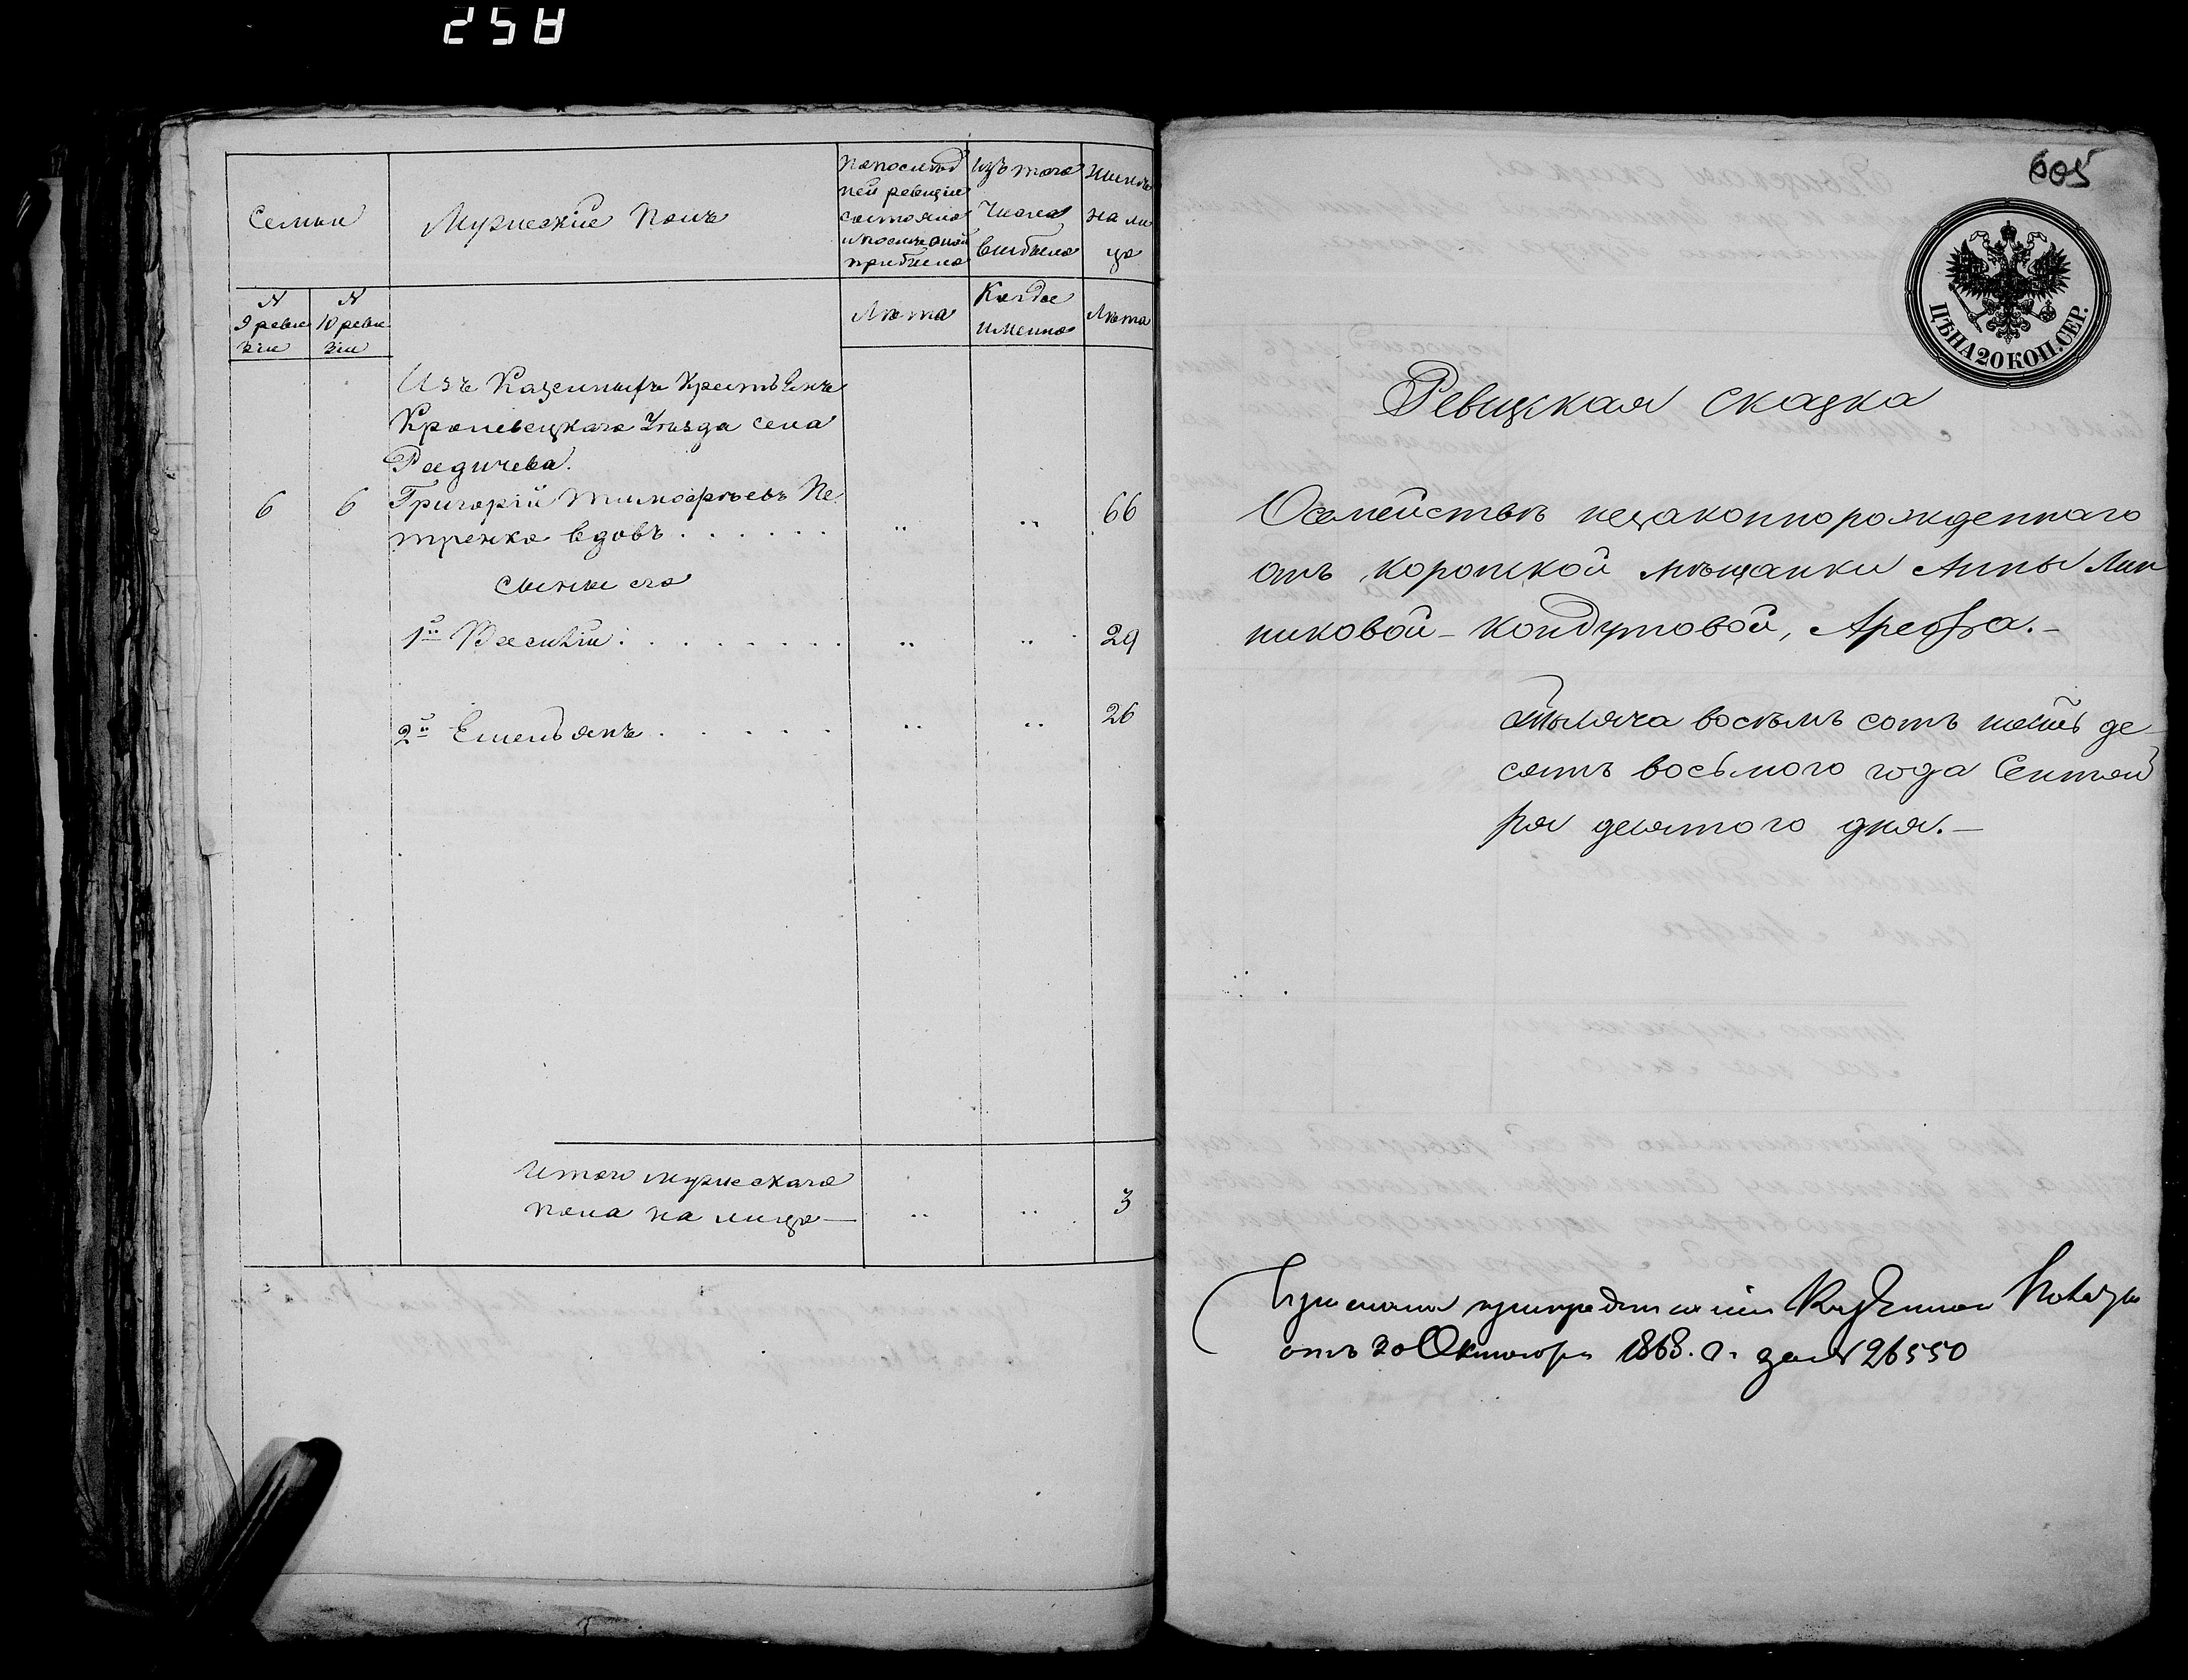 258
Семьи
Мужескiй полъ
По послѣд
ней ревизiи
состояло
и послѣ оной
прибыло
Изъ того
числа
выбыло
Нынѣ
на ли
цо
N
9 реви
зiи
N
10 реви
зiи
Лѣта
Когда
именно
Лѣта
Изъ Казенныхъ Крестьянъ
Кролевецкаго Уѣзда села
Радичева.
6 6 Григорiй Тимофѣевъ Пе
тренко вдовъ . . . . . . " " 66
сыны его
1й Василiй . . . . . . . . " " 29
2й Емельянъ . . . . . . " " 26
Итого мужескаго
пола на лицо — " " 3
605
ЦѢНА 20 КОП. СЕР.
Ревизская сказка
О семействѣ незаконнорожденнаго
отъ коропской мѣщанки Анны Лип
никовой - Кондуповой, Арефа. —
Тысяча восѣмъ сотъ пять де
сятъ восьмого года Сентяб
ря десятого дня. —
при предписанiи Казенной Палаты
отъ 30 Октября 1868. г. за N 26550